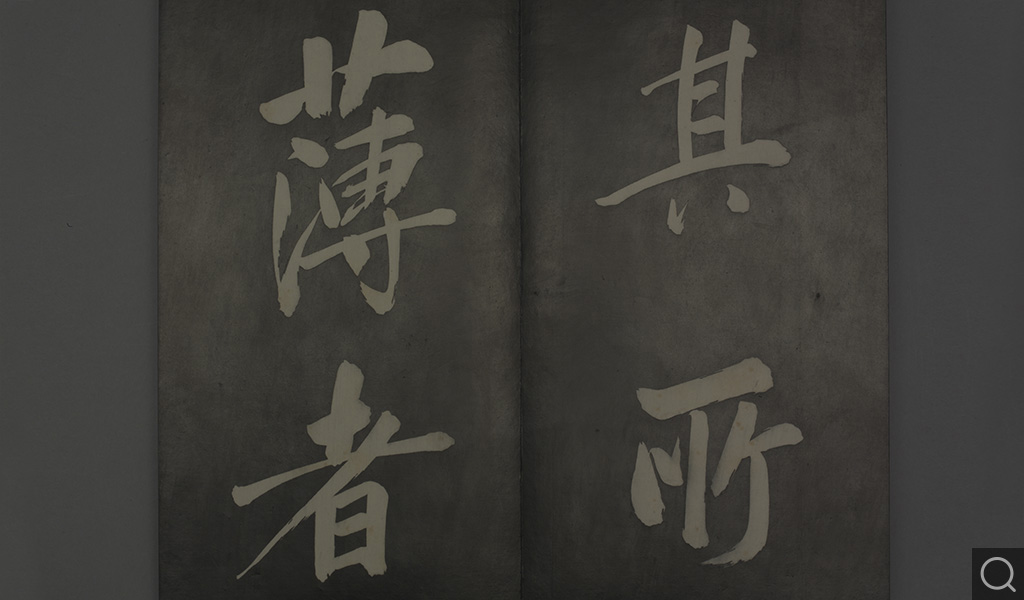 其所
薄者